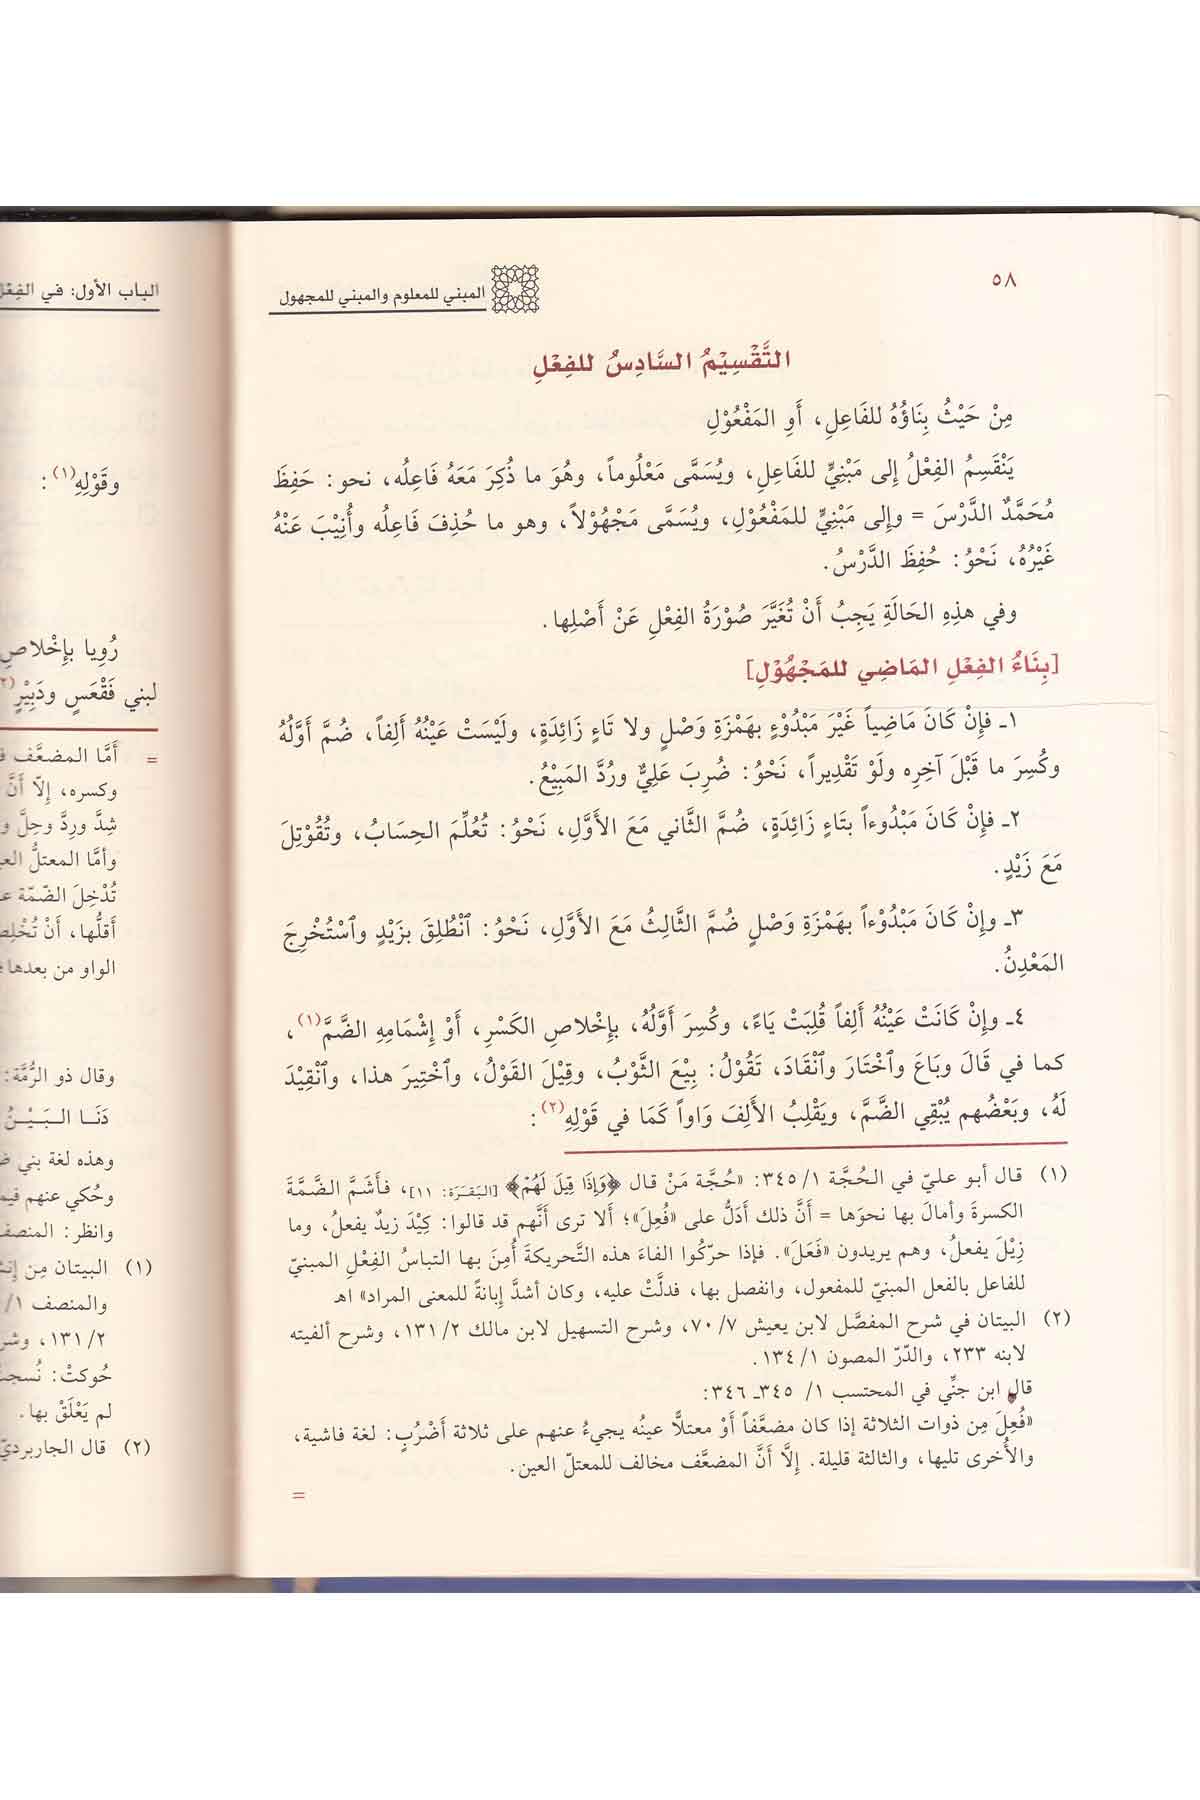 ٥٨
المبني للمعلوم والمبني للمجهول
التَّقْسِيْمُ السَّادِسُ للفِعْلِ
مِنْ حَيْثُ بِنَاؤُهُ للفَاعِلِ، أَوِ المَفْعُوْلِ
يَنْقَسِمُ الفِعْلُ إلى مَبْنِيٍّ للفَاعِلِ، ويُسَمَّى مَعْلُوماً، وهُوَ ما ذُكِرَ مَعَهُ فَاعِلُه، نحو: حَفِظَ
مُحَمَّدٌ الدَّرْسَ = وإلى مَبْنِيٍّ للمَفْعُوْلِ، ويُسَمَّى مَجْهُوْلاً، وهو ما حُذِفَ فَاعِلُه وأُنِيْبَ عَنْهُ
غَيْرُهُ، نَحْوُ: حُفِظَ الدَّرْسُ.
وفي هذِهِ الحَالَةِ يَجِبُ أَنْ تُغَيَّرَ صُوْرَةُ الفِعْلِ عَنْ أَصْلِها.
[بِنَاءُ الفِعْلِ المَاضِي للمَجْهُوْلِ]
١ـ فإِنْ كَانَ مَاضِياً غَيْرَ مَبْدُوْءٍ بِهَمْزَةِ وَصْلٍ ولا تَاءٍ زَائِدَةٍ، ولَيْسَتْ عَيْنُهُ أَلِفاً، ضُمَّ أَوَّلُهُ
وكُسِرَ ما قَبْلَ آخِرِه ولَوْ تَقْدِيراً، نَحْوُ: ضُرِبَ عَلِيٌّ ورُدَّ المَبِيْعُ.
٢ـ فإِنْ كَانَ مَبْدُوءاً بتَاءٍ زَائِدَةٍ، ضُمَّ الثَّاني مَعَ الأَوَّلِ، نَحْوُ: تُعُلِّمَ الحِسَابُ، وتُقُوْتِلَ
مَعَ زَيْدٍ.
٣ـ وإِنْ كَانَ مَبْدُوْءاً بهَمْزَةِ وَصْلٍ ضُمَّ الثَّالِثُ مَعَ الأَوَّلِ، نَحْوُ: ٱنْطُلِقَ بزَيْدٍ وٱسْتُخْرِجَ
المَعْدِنُ.
٤ـ وإِنْ كَانَتْ عَيْنُهُ أَلِفاً قُلِبَتْ يَاءً، وكُسِرَ أَوَّلُهُ، بإِخْلاصِ الكَسْرِ، أَوْ إِشْمَامِهِ الضَّمَّ(١)،
كما في قَالَ وبَاعَ وٱخْتَارَ وٱنْقَادَ، تَقُوْلُ: بِيْعَ الثَّوْبُ، وقِيْلَ القَوْلُ، وٱخْتِيرَ هذا، وٱنْقِيْدَ
لَهُ، وبَعْضُهم يُبْقِي الضَّمَّ، ويَقْلِبُ الأَلِفَ وَاواً كَمَا في قَوْلِهِ(٢):
(١) قال أبو عليّ في الحُجَّة ١/ ٣٤٥: «حُجَّة مَنْ قال ﴿وَإِذَا قِيلَ لَهُمْ﴾ [البَقَرَة: ١١]، فأَشَمَّ الضَّمَّةَ
الكسرةَ وأمالَ بها نحوَها = أَنَّ ذلك أَدَلُّ على «فُعِلَ»؛ أَلا ترى أَنَّهم قد قالوا: كِيْدَ زيدٌ يفعلُ، وما
زِيْلَ يفعلُ، وهم يريدون «فَعَلَ». فإذا حرّكُوا الفاءَ هذه التَّحريكةَ أُمِنَ بها التباسُ الفِعْلِ المبنيّ
للفاعل بالفعل المبنيّ للمفعول، وانفصل بها، فدلَّتْ عليه، وكان أشدَّ إِبانةً للمعنى المراد» اهـ
(٢) البيتان في شرح المفصَّل لابن يعيش ٧/ ٧٠، وشرح التسهيل لابن مالك ٢/ ١٣١، وشرح ألفيته
لابنه ٢٣٣، والدّرّ المصون ١/ ١٣٤.
قال ابن جنِّي في المحتسب ١/ ٣٤٥ـ ٣٤٦:
«فُعِلَ مِن ذوات الثلاثة إذا كان مضعَّفاً أَوْ معتلًّا عينُه يجيءُ عنهم على ثلاثة أَضْرُبٍ: لغة فاشية،
والأُخرى تليها، والثالثة قليلة. إِلَّا أَنَّ المضعَّف مخالف للمعتلّ العين.
=
الباب الأول: في الفِعْل
وقَوْلِهِ(١):
رُوِيا بإِخْلاصِ
لبني فَقْعَسٍ ودَبِيْرٍ(٢
= أَمَّا المضعَّف
وكسره، إِلّا أَنَّ
شِدَّ ورِدَّ وحِلَّ
وأمَّا المعتلُّ
تُدْخِلَ الضّمّة
أَقلُّها، أَنْ
الواو من بعدها
وقال ذو الرُّمَّة:
دَنَـا الـبَـيْـنُ
وهذه لغة بني
وحُكي عنهم
وانظر: المنصف
(١) البيتان مِن
والمنصف ١/
٢/ ١٣١،
حُوكتْ: نُسجتْ
لم يَعْلَقْ بها.
(٢) قال الجاربرديّ